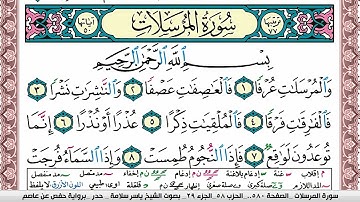 ترتيبها ٧٧ سورة المرسلات آياتها ٥٠
بِسْمِ ٱللَّهِ ٱلرَّحْمَٰنِ ٱلرَّحِيمِ
وَٱلْمُرْسَلَٰتِ عُرْفًا ١ فَٱلْعَٰصِفَٰتِ عَصْفًا ٢ وَٱلنَّٰشِرَٰتِ نَشْرًا ٣
فَٱلْفَٰرِقَٰتِ فَرْقًا ٤ فَٱلْمُلْقِيَٰتِ ذِكْرًا ٥ عُذْرًا أَوْ نُذْرًا ٦ إِنَّمَا
تُوعَدُونَ لَوَٰقِعٌ ٧ فَإِذَا ٱلنُّجُومُ طُمِسَتْ ٨ وَإِذَا ٱلسَّمَآءُ فُرِجَتْ
سورة المرسلات . الصفحة ٥٨٠ . الحزب ٥٨ . الجزء ٢٩ . بصوت الشيخ ياسر سلامة . حدر . برواية حفص عن عاصم